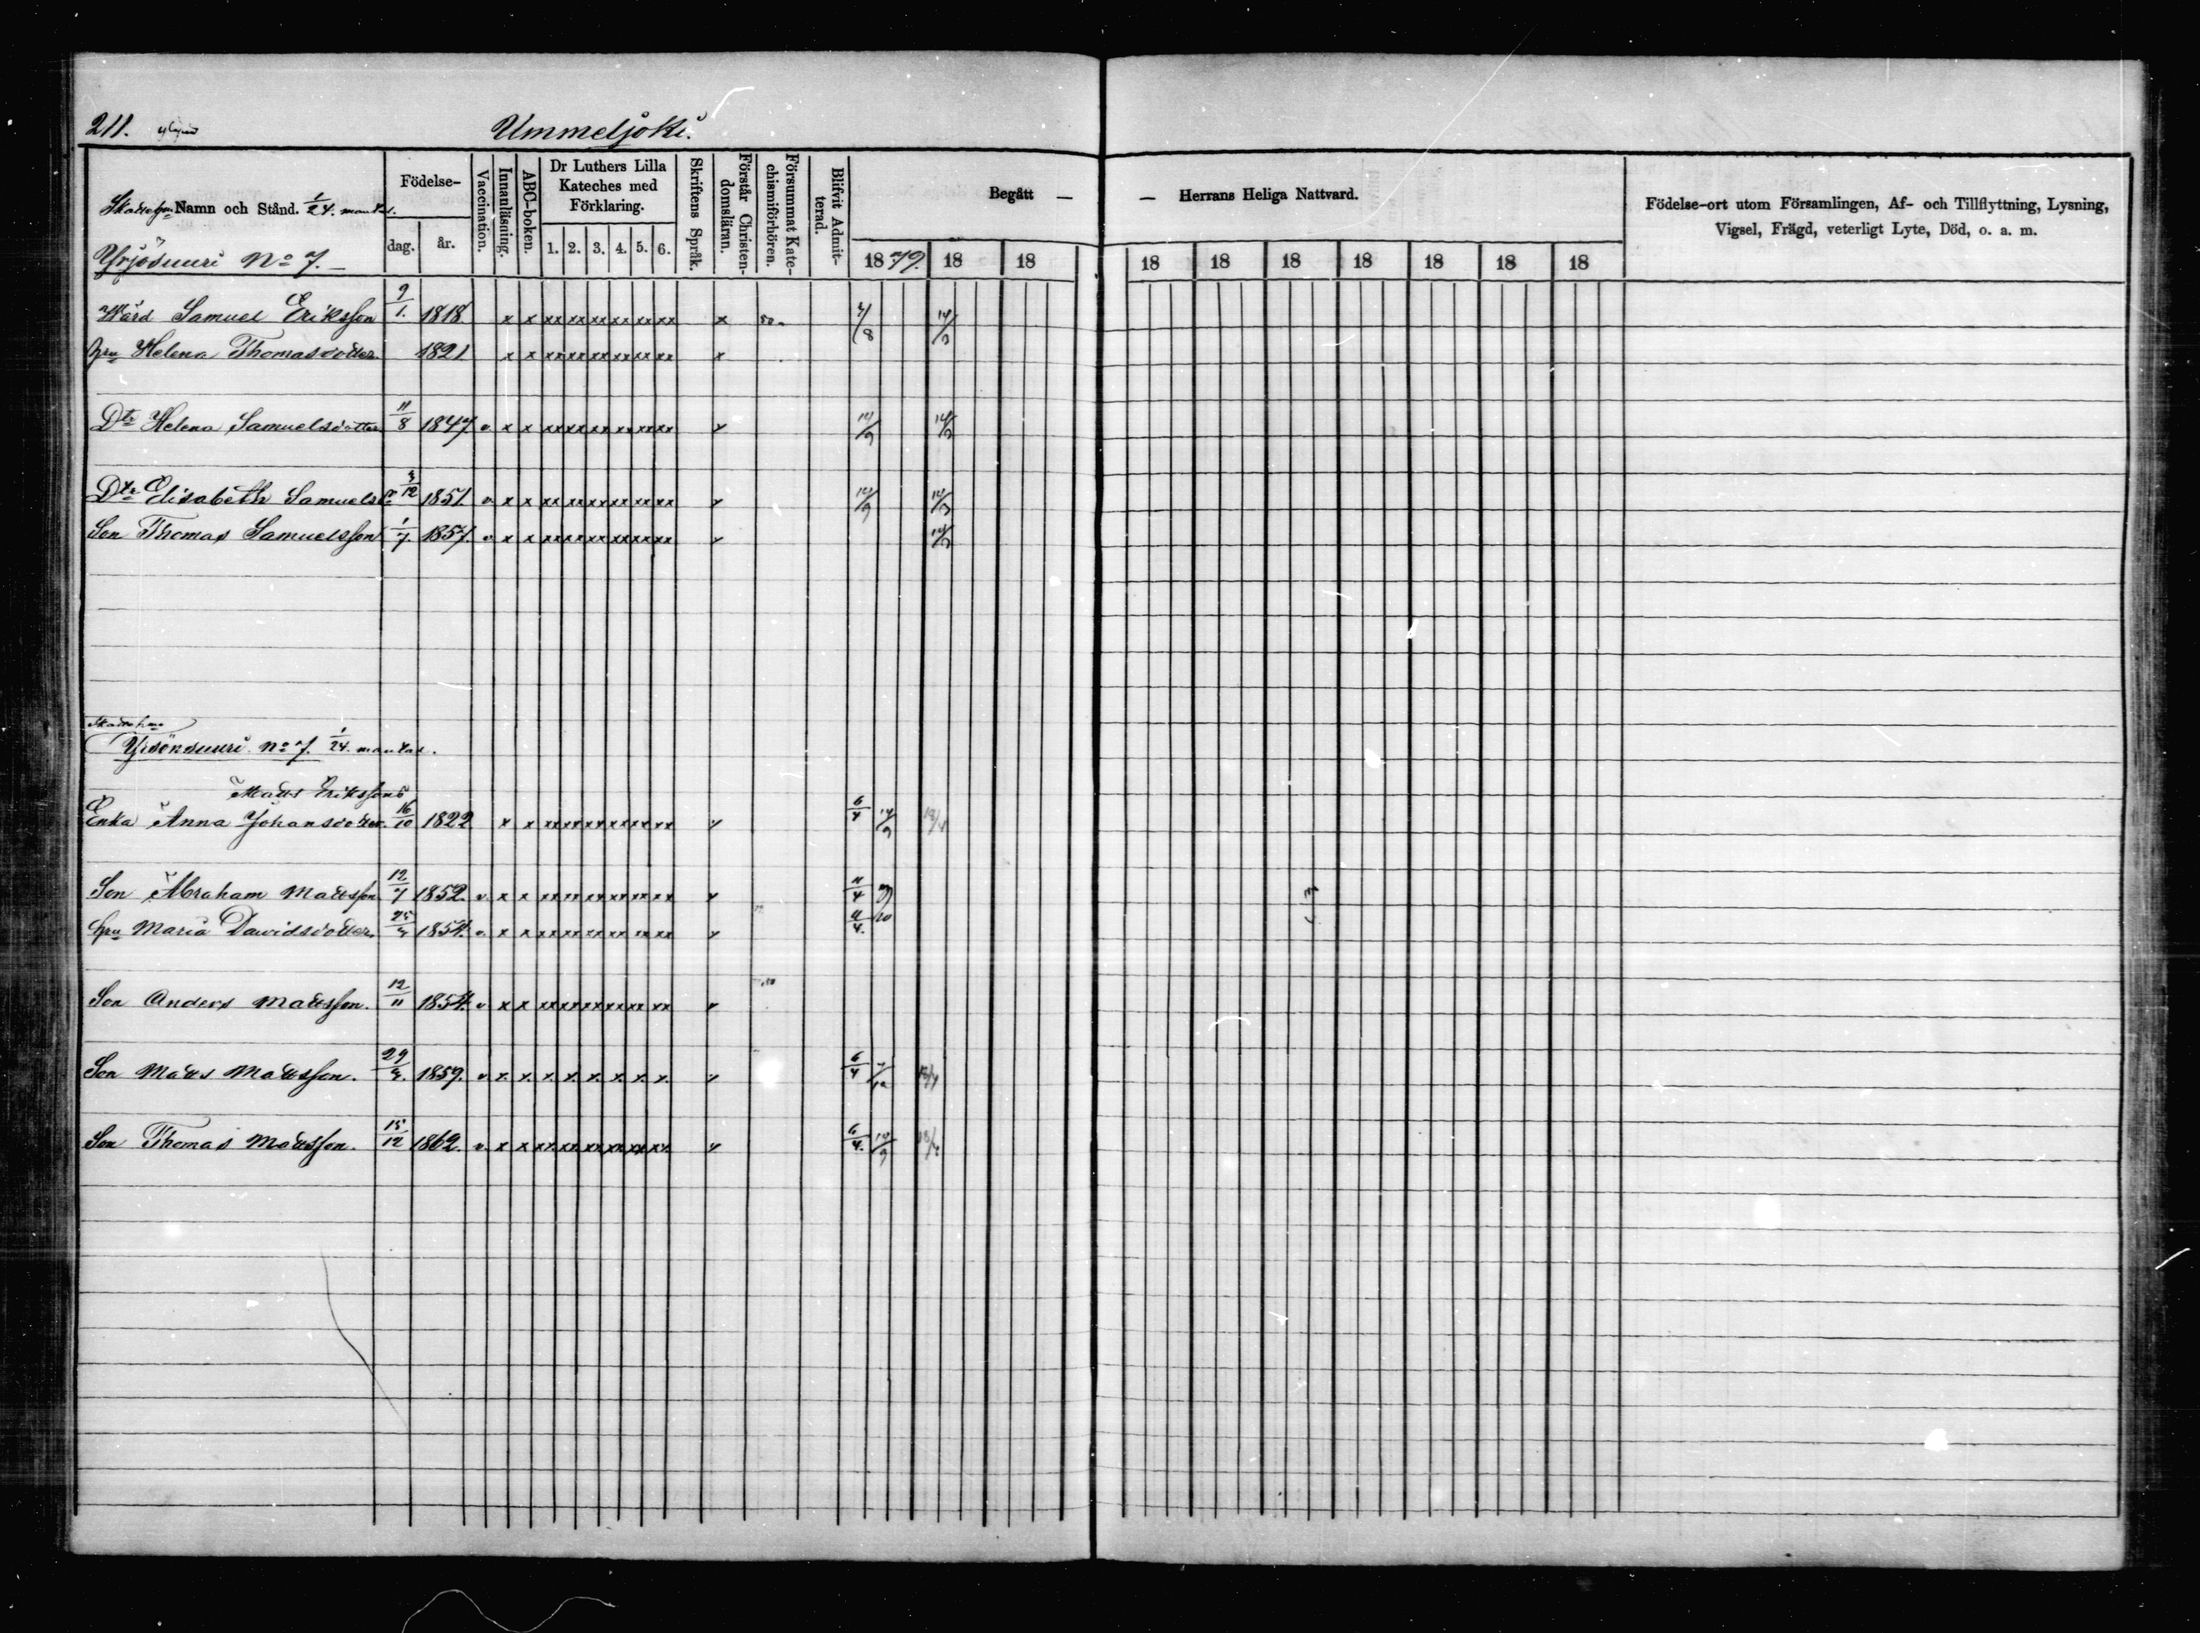 211.
Ummeljoki.
Namn och Stånd. 1/24. mantal.
Yrjösuuri No 7.
Födelse-
dag. år.
Vaccination.
Innanläsning.
ABC-boken.
Dr Luthers Lilla
Kateches med
Förklaring.
1. 2. 3. 4. 5. 6.
Skriftens Språk.
Förstår Christen-
domsläran.
Försummat Kate-
chismiförhören.
Blifvit Admit-
terad.
Begått —
— Herrans Heliga Nattvard.
1879. 18 18 18 18 18 18 18 18 18
Födelse-ort utom Församlingen, Af- och Tillflyttning, Lysning,
Vigsel, Frägd, veterligt Lyte, Död, o. a. m.
Wärd Samuel Eriksson 9/1. 1818 x x xx xx xx xx xx xx x
hru Helena Thomasdotter 1821 x x xx xx xx xx xx xx x
Dtr Helena Samuelsdotter 11/8 1847. v. x x xx xx xx xx xx xx x 14/9
Dtr Elisabeth Samuelsdr 3/12 1851. v. x x xx xx xx xx xx xx x 14/9
Son Thomas Samuelsson 1/7. 1857. v. x x xx xx xx xx xx xx x
No 7. 1/24. mantal.
Matts Erikssons
Enka Anna Johansdotter. 16/10 1822 x x xx xx xx xx xx xx x 6/4 14/9
Son Abraham Mattsson 12/7 1852. v. x x xx xx xx xx xx xx x 11/4
hru Maria Davidsdotter. 25/3 1854. v. x x xx xx xx xx xx xx x
Son Anders Mattsson. 12/11 1854. v. x x xx xx xx xx xx xx x
Son Matts Mattsson. 29/3. 1859. v. x x. x. x x. x x x. x 6/4
Son Thomas Mattsson. 15/12 1862. v. x x xx xx xx xx xx xx x 6/4. 14/9